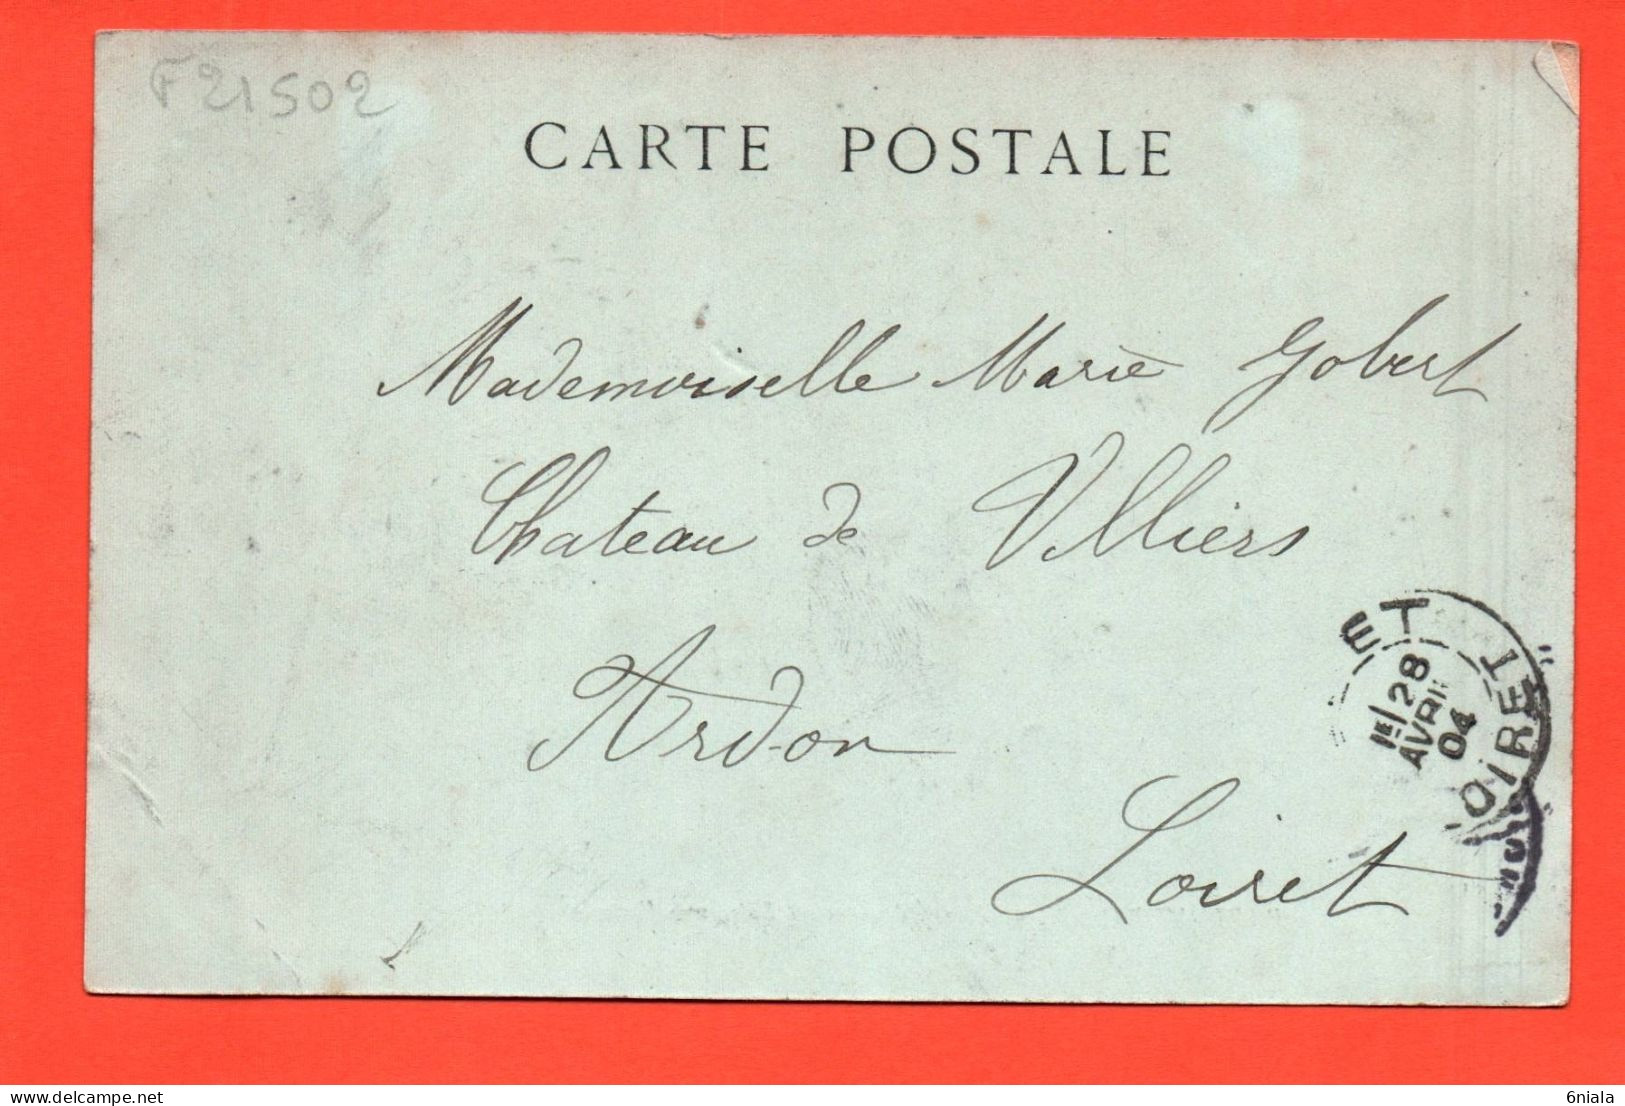 F 21502
CARTE POSTALE
Mademoiselle Marie Gobert
Chateau de Villiers
Ardon
Loiret
28
AVRIL
04
LOIRET
delcampe.net
6niala